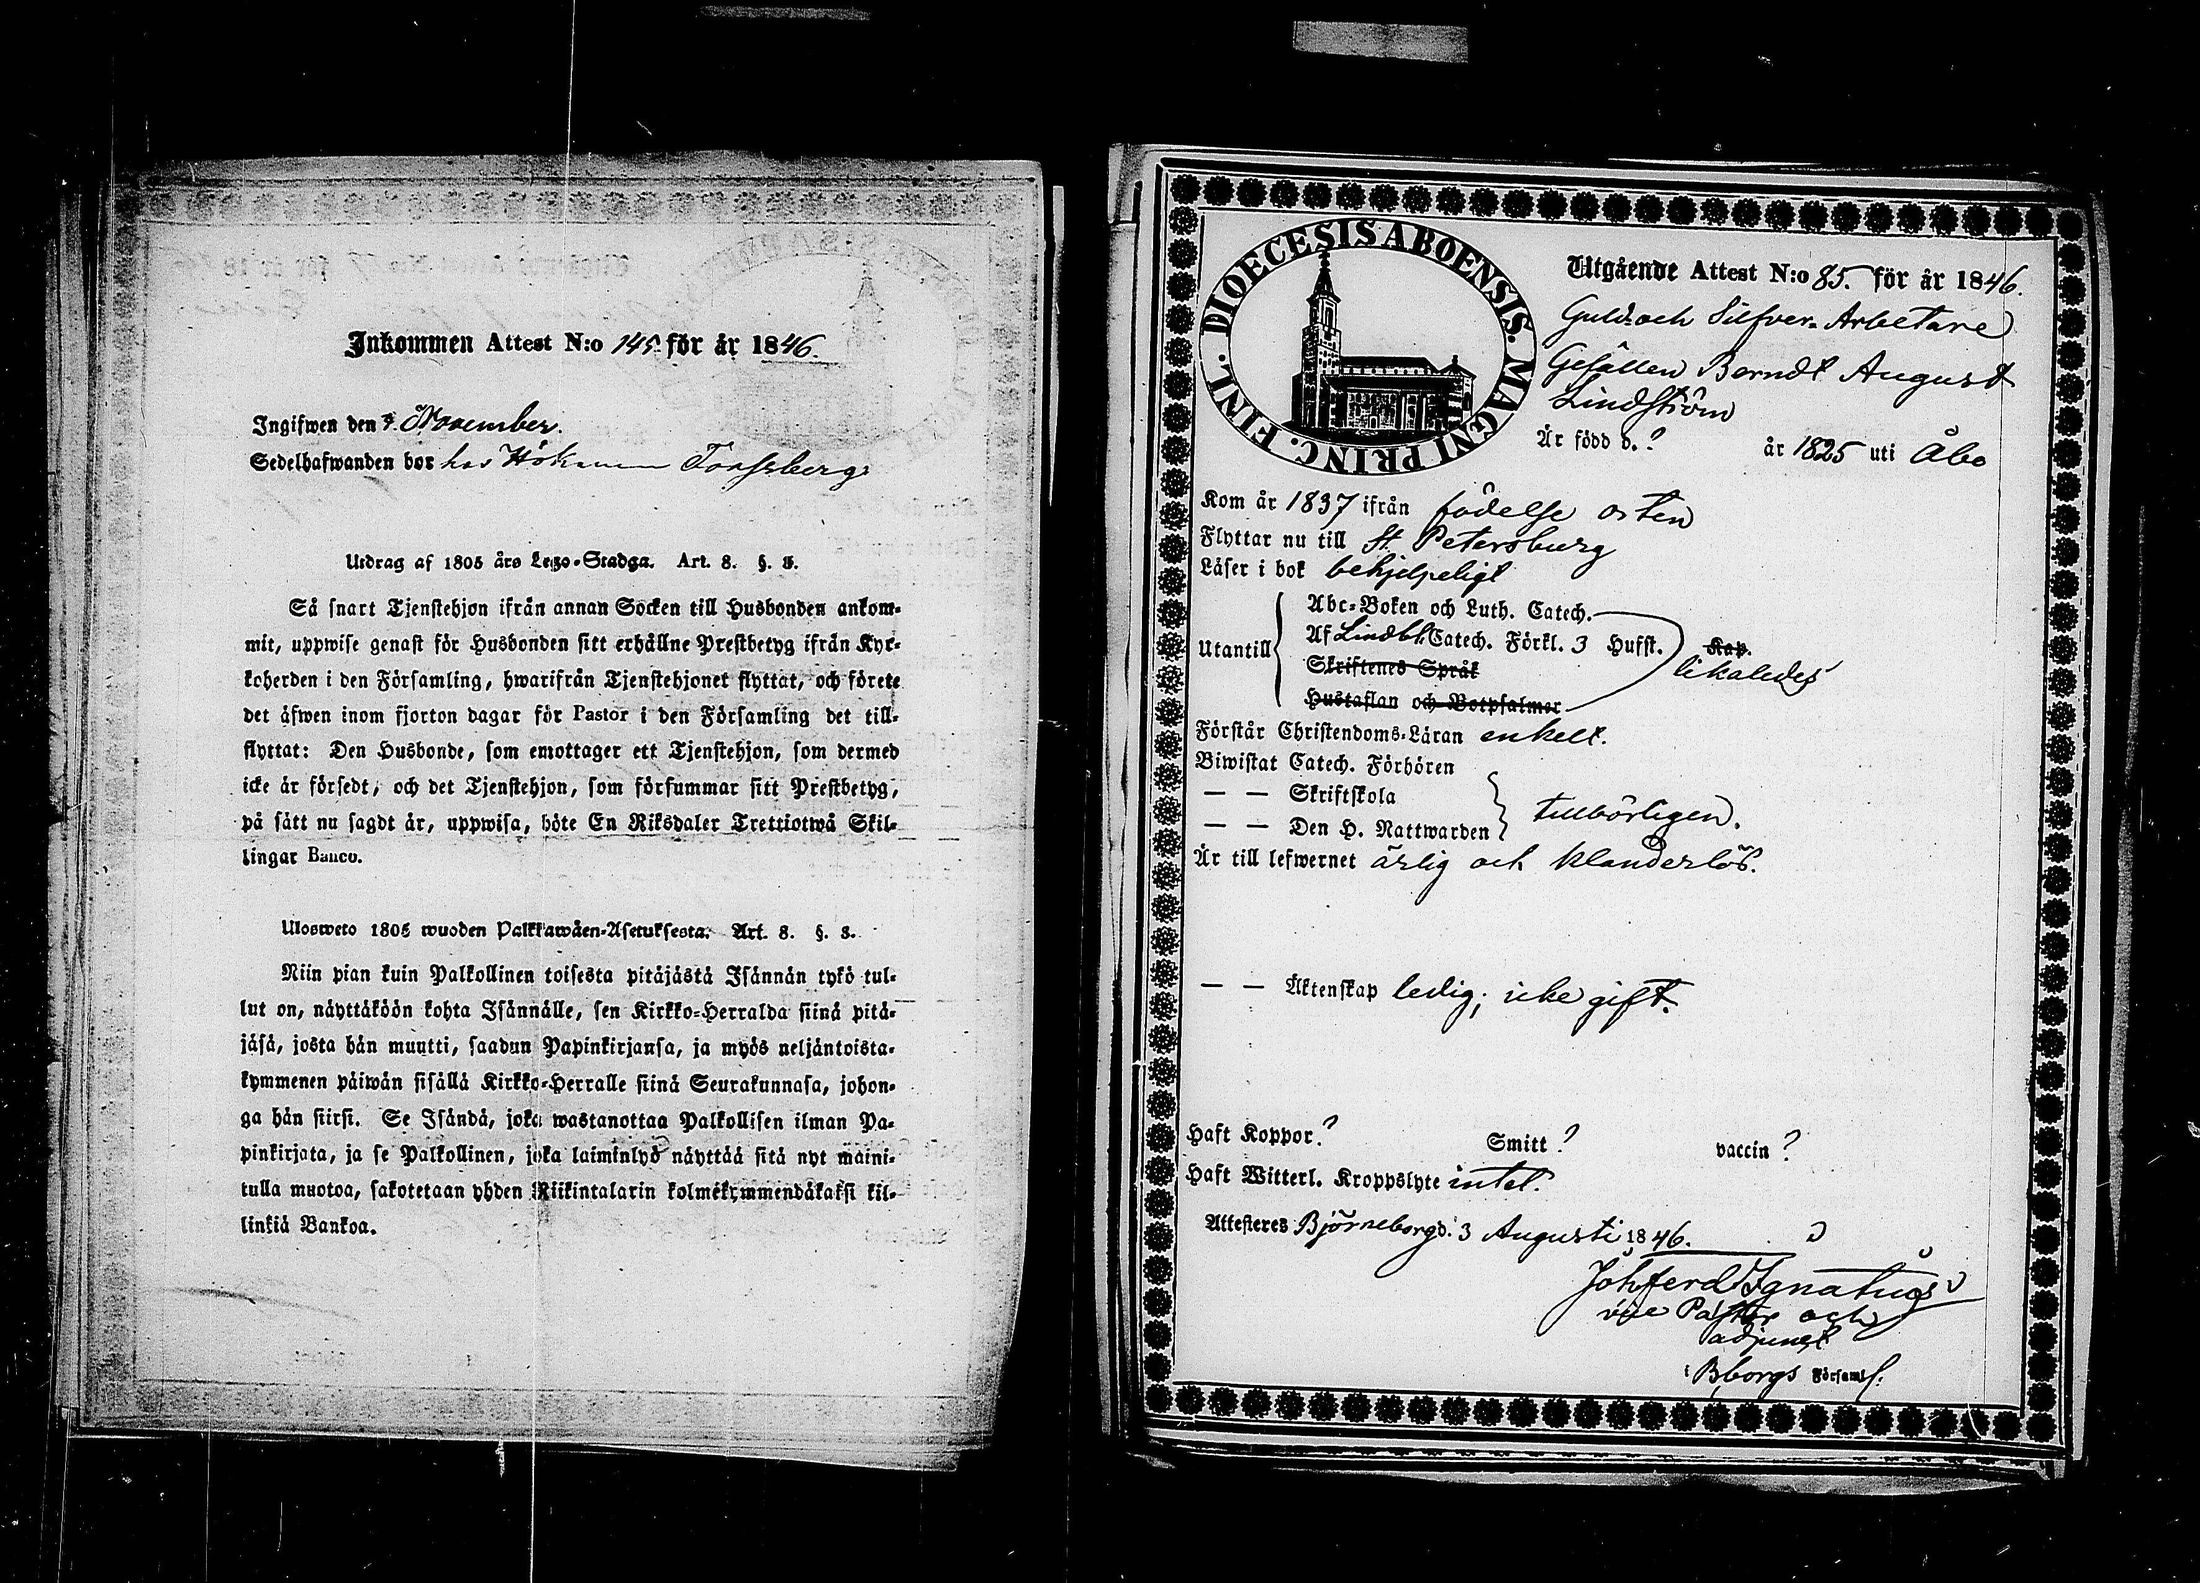 Inkommen Attest N:o 145. för år 1846.
Ingifwen den 7. November.
Sedelhafwanden bor hos Hökaren Forssberg
Utdrag af 1805 års Lego-Stadga. Art. 8. §. 8.
Så snart Tjenstehjon ifrån annan Socken till Husbonden ankom-
mit, uppwise genast för Husbonden sitt erhållne Prestbetyg ifrån Kyr-
koherden i den Församling, hwarifrån Tjenstehjonet flyttat, och förete
det äfwen inom fjorton dagar för Pastor i den Församling det till-
flyttat: Den Husbonde, som emottager ett Tjenstehjon, som dermed
icke är försedt, och det Tjenstehjon, som försummar sitt Prestbetyg,
på sätt nu sagdt är, uppwisa, böte En Riksdaler Trettiotwå Skil-
lingar Banco.
Ulosweto 1805 wuoden Palkkawäen-Asetuksesta. Art. 8. §. 8.
Niin pian kuin Palkollinen toisesta pitäjästä Isännän tykö tul-
lut on, näyttäköön kohta Isännälle, sen Kirkko-Herralda siinä pitä-
jäsä, josta hän muutti, saadun Papinkirjansa, ja myös neljäntoista-
kymmenen päiwän sisällä Kirkko-Herralle siinä Seurakunnasa, johon-
ga hän siirsi. Se Isändä, joka wastanottaa Palkollisen ilman Pa-
pinkirjata, ja se Palkollinen, joka laiminlyö näyttää sitä nyt maini-
tulla muotoa, sakotetaan yhden Riikintalarin kolmekymmendäkaksi kil-
linkiä Bankoa.
DIOECESIS ABOENSIS. MAGNI PRINC. FINL.
Utgående Attest N:o 85. för år 1846.
Guld och Silfver-Arbetare
Gesällen Berndt August
Lindström
Är född d. ? år 1825 uti Åbo
Kom år 1837 ifrån födelse orten
Flyttar nu till St. Petersburg
Läser i bok behjelpeligt
Utantill
Abc-Boken och Luth. Catech.
Af Lindbl. Catech. Förkl. 3 Hufst. Kap.
likaledes
Skriftenes Språk
Hustaflan och Botpsalmer
Förstår Christendoms-Läran enkelt.
Biwistat Catech. Förhören
— — Skriftskola
tillbörligen.
— — Den H. Nattwarden
Är till lefwernet ärlig och klanderlös.
— — Äktenskap ledig; icke gift.
Haft Koppor ? Smitt ? vaccin ?
Haft Witterl. Kroppslyte intet.
Attesteres Björneborg d. 3 Augusti 1846.
Joh Ferd Ignatius
vice Pastor och
adjunct
i Bborgs Församl.